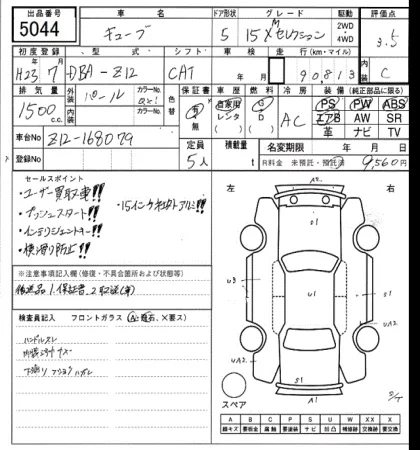 出品番号 車名 ドア形状 グレード 駆動 評価点
5044 キューブ 5 15X Mセレクション 2WD 4WD 3.5
初度登録 型式 シフト 車検 走行(km・マイル) 内装
H23 7 DBA-Z12 CAT 年 月 90,813 C
排気量 外装 カラーNo. 色替 保証書 車歴 燃料 冷房 装備(純正部品に限る)
1500 c.c. パール QX1 有 無 自家用 レンタ G D AC PS PW ABS
内装 カラーNo. エアB AW SR
革 ナビ TV
車台No Z12-168079 定員 5人 積載量 t 名変期限 年 月 日
登録No. R料金 未預託・預託済 9,560円
セールスポイント
・ユーザー買取車!!
・プッシュスタート!! ・15インチ社外アルミ!!
・インテリジェントキー!!
・横滑り防止!!
※注意事項記入欄(修復・不具合箇所および状態等)
後送品 1.保証書、2.取説(車)
検査員記入 フロントガラス(A:飛石、X要ス)
ハンドルスレ
左 右
U3 U1 S1
UA2 UA2
S1 S1
A1
スペア
A B C P S U W X XX
線キズ 要板金 腐 要塗装 サビ 凹凸 補修跡 交換跡 要交換